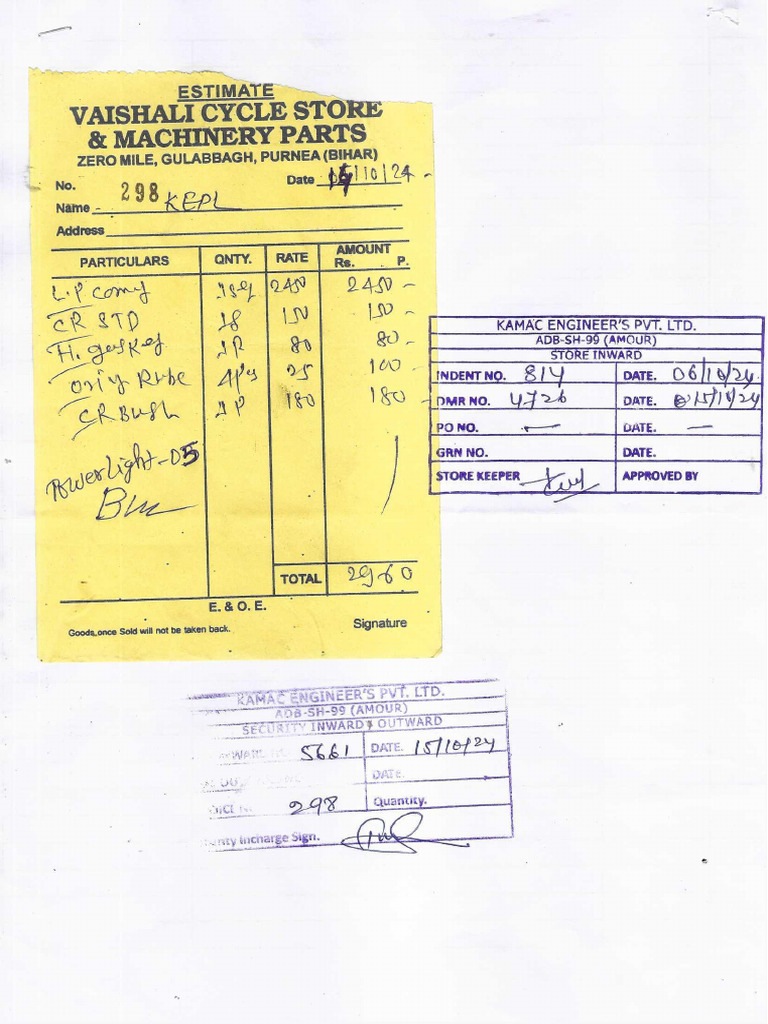 ESTIMATE
VAISHALI CYCLE STORE
& MACHINERY PARTS
ZERO MILE, GULABBAGH, PURNEA (BIHAR)
No. 298 Date 15/10/24
Name KEPL
Address
PARTICULARS QNTY. RATE AMOUNT Rs. P.
L.P 2450 2450 -
CR STD 150 150 -
H. 80 80 -
25 100 -
CR Bush 180 180 -
Power Light - 05
TOTAL 2960
E. & O. E.
Goods once Sold will not be taken back. Signature
KAMAC ENGINEER'S PVT. LTD.
ADB-SH-99 (AMOUR)
STORE INWARD
INDENT NO. 814 DATE. 06/10/24
DMR NO. 4726 DATE. 15/10/24
PO NO. — DATE. —
GRN NO. DATE.
STORE KEEPER APPROVED BY
KAMAC ENGINEER'S PVT. LTD.
ADB-SH-99 (AMOUR)
SECURITY INWARD OUTWARD
5661 DATE. 15/10/24
DATE.
298 Quantity.
Incharge Sign.